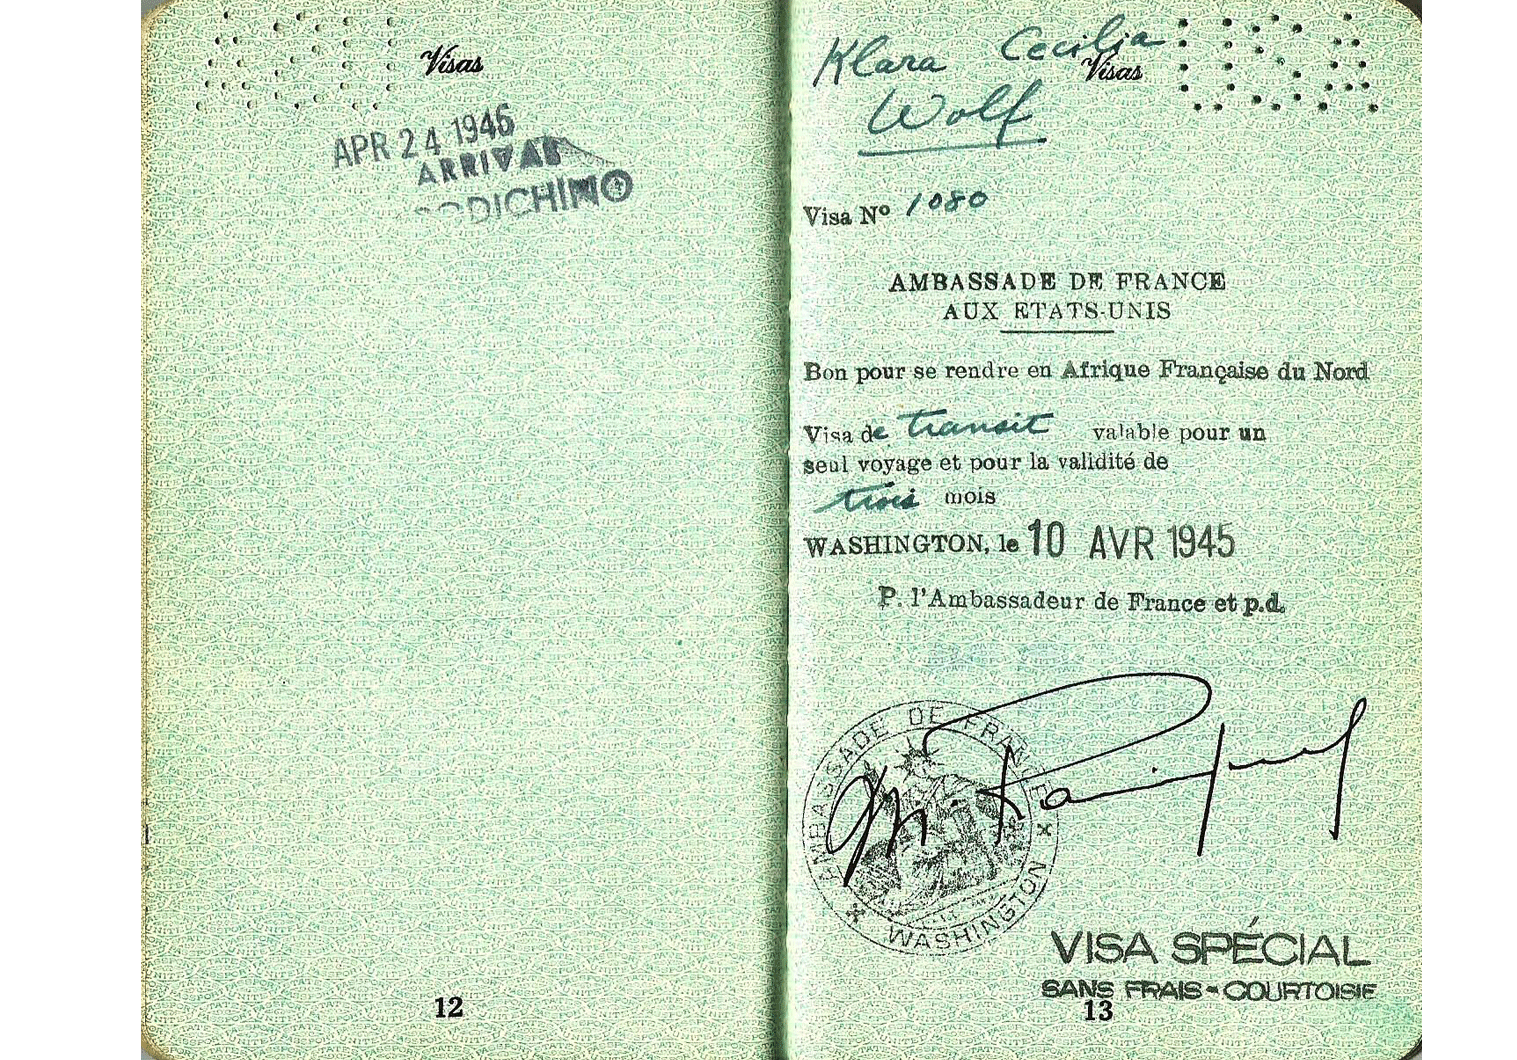 Visas
APR 24 1946
ARRIVAL
ODICHINO
12
Klara Cecilia
Visas
Wolf
Visa Nº 1080
AMBASSADE DE FRANCE
AUX ETATS-UNIS
Bon pour se rendre en Afrique Française du Nord
Visa de transit valable pour un
seul voyage et pour la validité de
trois mois
WASHINGTON, le 10 AVR 1945
P. l'Ambassadeur de France et p.d.
AMBASSADE DE FRANCE
WASHINGTON
VISA SPÉCIAL
SANS FRAIS - COURTOISIE
13
USA